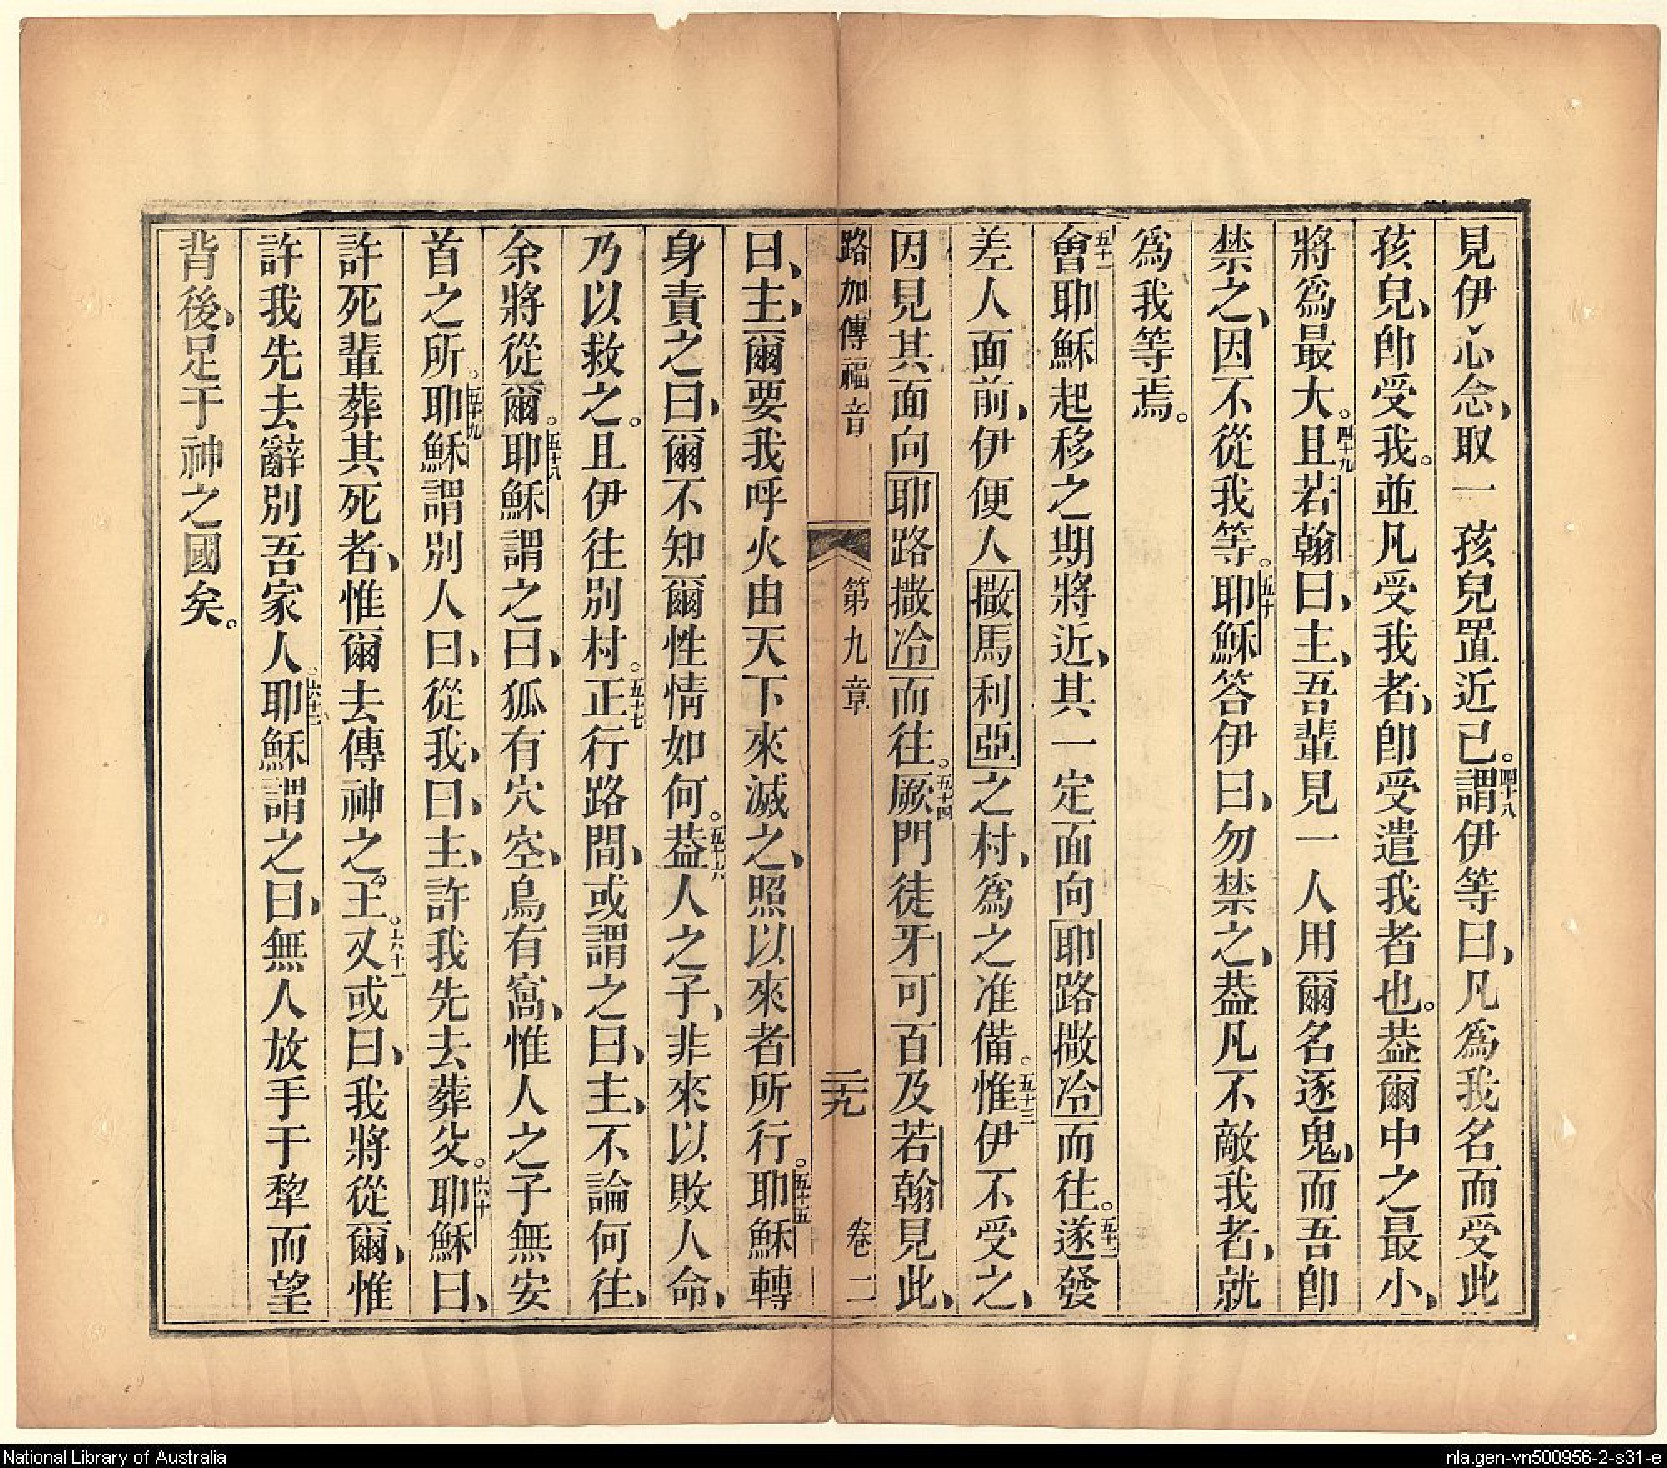 見伊心念、取一孩兒置近己。四十八謂伊等曰、凡爲我名而受此
孩兒、卽受我。並凡受我者、卽受遣我者也。葢爾中之最小、
將爲最大。四十九且若翰曰、主、吾輩見一人用爾名逐鬼、而吾卽
禁之、因不從我等。五十耶穌答伊曰、勿禁之、葢凡不敵我者、就
爲我等焉。
五十一會耶穌起移之期將近、其一定面向耶路撒冷而往。五十二遂發
差人面前、伊便人撒馬利亞之村、爲之准備。五十三惟伊不受之、
因見其面向耶路撒冷而往。五十四厥門徒牙可百及若翰見此、
路加傳福音 第九章 二九 卷二
曰、主、爾要我呼火由天下來滅之、照以來者所行。五十五耶穌轉
身責之曰、爾不知爾性情如何。五十六葢人之子、非來以敗人命、
乃以救之。且伊往別村。五十七正行路間、或謂之曰、主、不論何往、
余將從爾。五十八耶穌謂之曰、狐有穴空、鳥有窩、惟人之子無安
首之所。五十九耶穌謂別人曰、從我、曰、主、許我先去葬父。六十耶穌曰、
許死輩葬其死者、惟爾去傳神之王。六十一又或曰、我將從爾、惟
許我先去辭別吾家人。六十二耶穌謂之曰、無人放手于犂而望
背後、足于神之國矣。
National Library of Australia
nla.gen-vn500956-2-s31-e